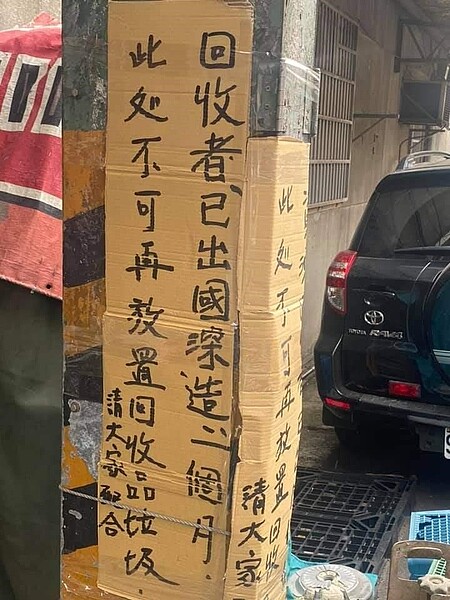 回收者已出國深造六個月.
此处不可再放置回收品垃圾.
清大家配合
此处不可再放置回收
清大家
TOYOTA RAV4